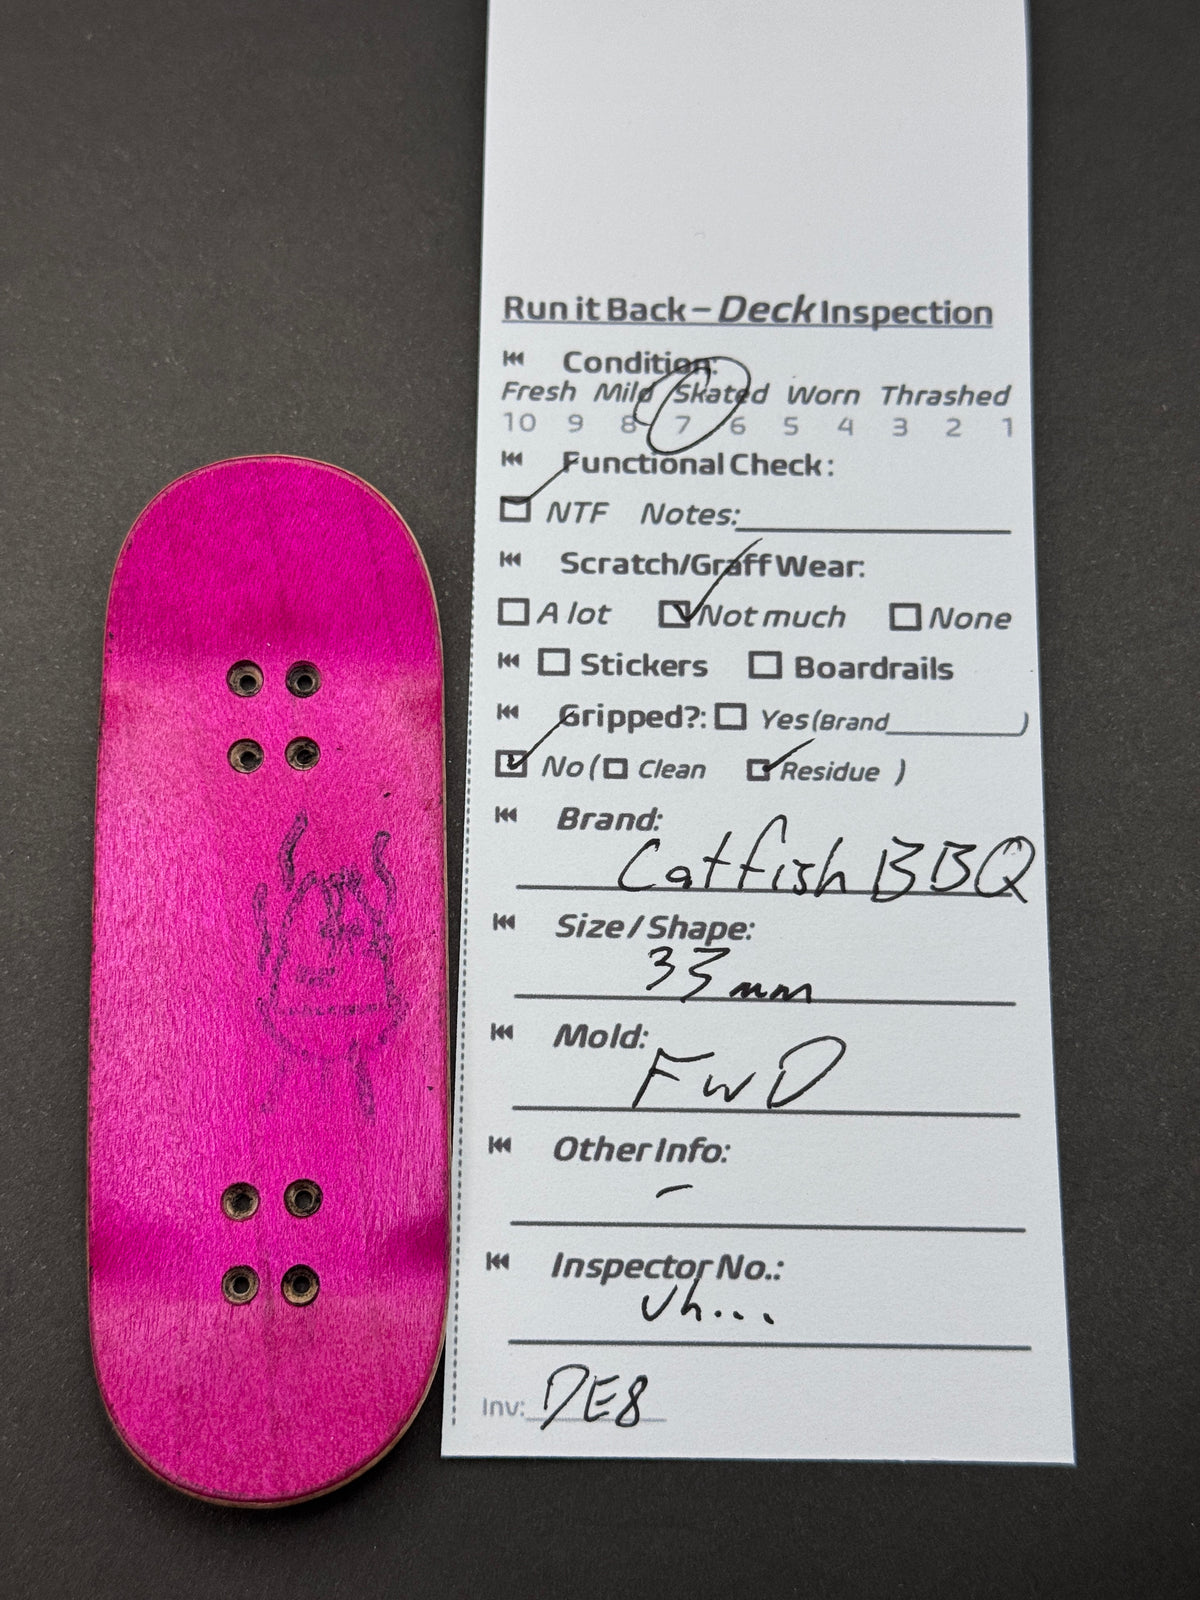 Run it Back – Deck Inspection
Condition:
Fresh Mild Skated Worn Thrashed
10 9 8 7 6 5 4 3 2 1
Functional Check:
NTF Notes:
Scratch/Graff Wear:
A lot Not much None
Stickers Boardrails
Gripped?: Yes (Brand )
No ( Clean Residue )
Brand:
Catfish BBQ
Size / Shape:
33 mm
Mold:
FWD
Other Info:
–
Inspector No.:
Uh...
Inv: DE8